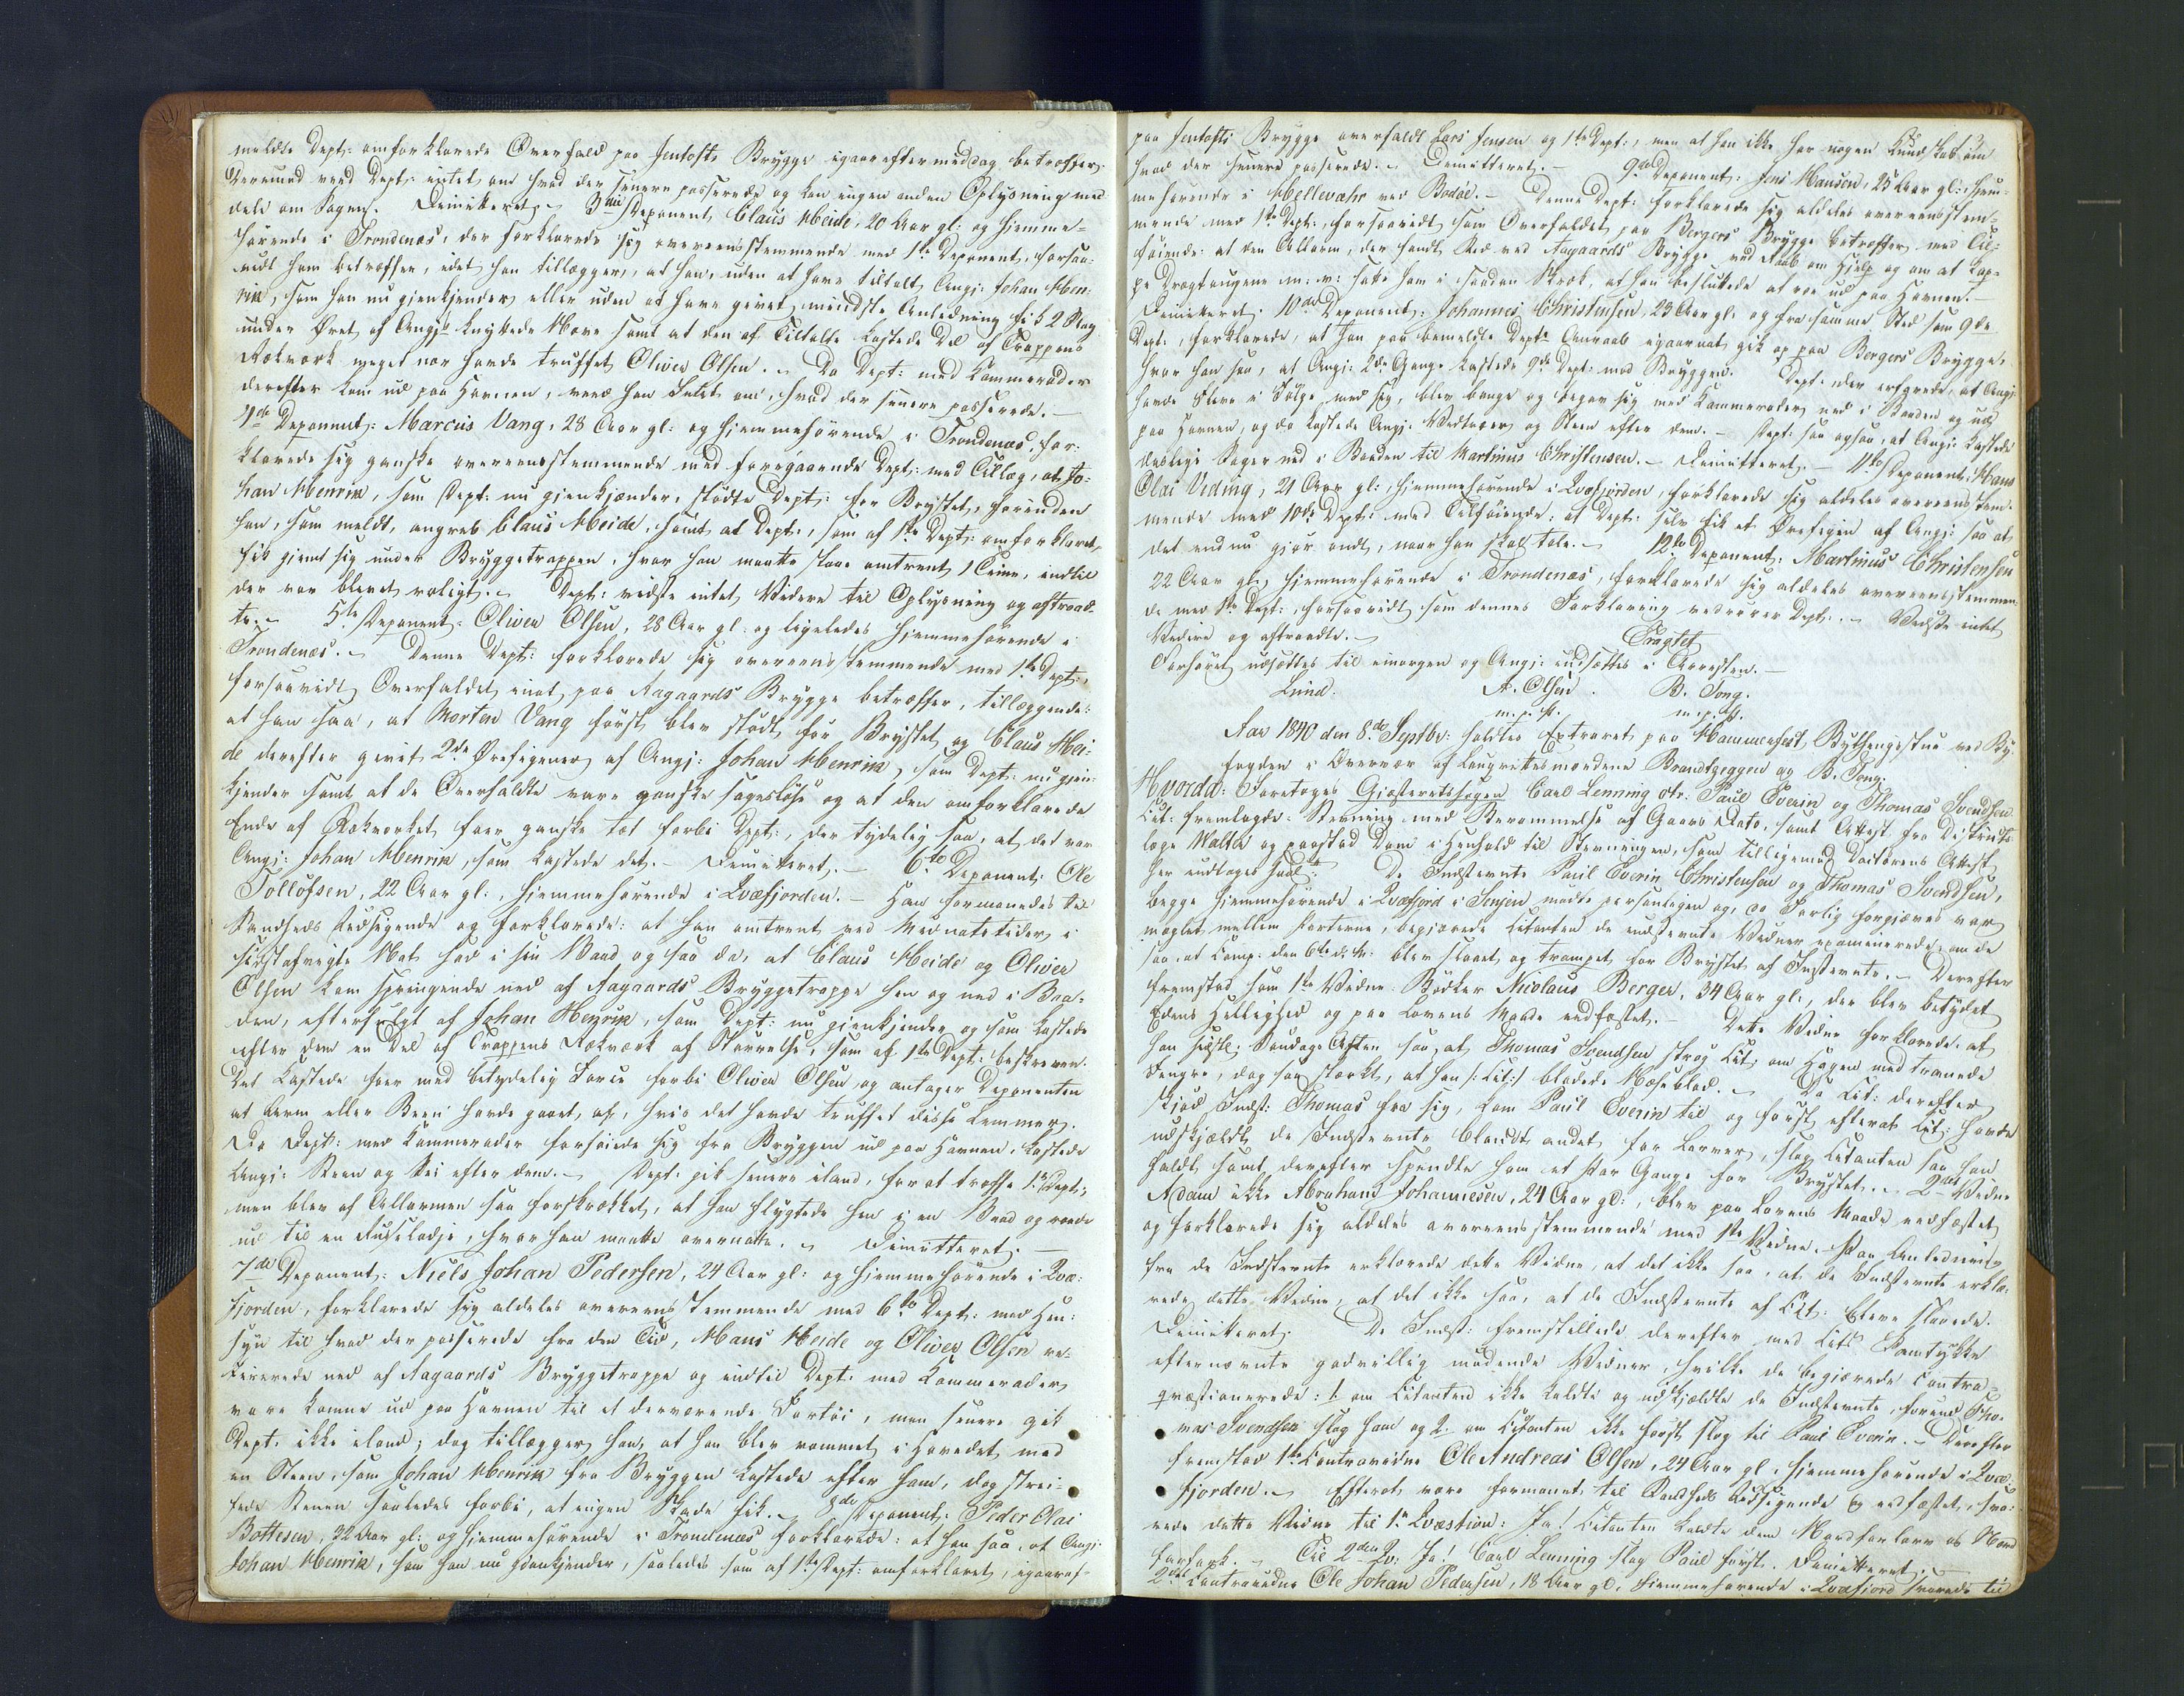 meldte Dept: omforklarede Overfald paa Jentofts Brygge igaareftermiddag betræffer.
Derimod veed Dept: intet om hvad der senere passerede og kan ingen anden Oplysning med
dele om Sagen. Dimitteret. 3die Deponent Claus Heide, 20 Aar gl: og hjemme-
hørende i Trondenæs, der forklarede sig overeensstemmende med 1ste Deponent, forsaa-
vidt ham betræffer, idet han tillægger, at han, uden at have tiltalt Angj: Johan Hen-
rik, som han nu gjenkjender, eller uden at have givet mindste Anledning fik 2 Slag
under Øret af Angjs knyttede Næve samt at den af Tiltalte kastede Del af Trappens
Rækværk meget nær havde truffet Oliver Olsen. Da Dept: med Kammerader
derefter kom ud paa Havnen, veed han Intet om, hvad der senere passerede. —
4de Deponent: Marcus Vang, 28 Aar gl: og hjemmehørende i Trondenæs, for-
klarede sig ganske overeensstemmende med foregaaende Dept: med Tillæg, at Jo-
han Henrik, som Dept: nu gjenkjender, stødte Dept: for Brystet, forinden
han, som meldt, angreb Claus Heide, samt at Dept:, som af 1ste Dept: omforklaret,
fik gjemt sig under Bryggetrappen, hvor han maatte staae omtrent 1 Time, indtil
der var blevet roligt. Dept: vidste intet Videre til Oplysning og aftraad-
te. — 5te Deponent: Oliver Olsen, 28 Aar gl. og ligeledes hjemmehørende i
Trondenæs. — Denne Dept: forklarede sig overeensstemmende med 1ste Dept:,
forsaavidt Overfaldet inat paa Aagaards Brygge betræffer, tillæggende:
at han saa, at Morten Vang først blev stødt for Brystet og Claus Hei-
de derefter givet 2de Ørefigener af Angj: Johan Henrik, som Dept: nu gjen-
kjender samt at de Overfaldte vare ganske sagesløse og at den omforklarede
Ende af Rækværket foer ganske tæt forbi Dept:, der tydelig saa, at det var
Angj: Johan Henrik, som kastede det. — Dimitteret. — 6te Deponent: Ole
Tollofsen, 22 Aar gl., hjemmehørende i Qvæfjorden. — Han formanedes til
Sandheds Udsigende og forklarede: at han omtrent ved Midnatstider i
sidstafvigte Nat sad i sin Baad og saa da, at Claus Heide og Oliver
Olsen kom springende ned af Aagaards Bryggetrappe hen og ned i Baa-
den, efterfulgt af Johan Henrik, som Dept: nu gjenkjender og som kastede
efter dem en Del af Trappens Rækværk af Størrelse, som af 1ste Dept: beskreven.
Det Kastede foer med betydelig Force forbi Oliver Olsen og antager Deponenten
at Arm eller Been havde gaaet af, hvis det havde truffet disse Lemmer.
Da Dept: med Kammerader forføiede sig fra Bryggen ud paa Havnen, kastede
Angj: Steen og Ski efter dem. — Dept: gik senere iland, for at træffe 1ste Dept:,
men blev af Allarmen saa forskrækket, at han flygtede hen i en Baad og roede
ud til en Russelodje, hvor han maatte overnatte. — Dimitteret. —
7de Deponent: Niels Johan Pedersen, 24 Aar gl: og hjemmehørende i Qvæ-
fjorden, forklarede sig aldeles overeensstemmende med 6te Dept: med Hen-
syn til hvad der passerede fra den Tid, Hans Heide og Oliver Olsen re-
tirerede ned af Aagaards Bryggetrappe og indtil Dept: med Kammerader
vare komne ud paa Havnen til et derværende Fartøi, men senere gik
Dept: ikke iland; dog tillægger han, at han blev rammet i Hovedet med
en Steen, som Johan Henrik fra Bryggen kastede efter ham, dog strei-
fede Stenen saaledes forbi, at ingen Skade fik. — 8de Deponent: Peder Olai
Bottesen, 32 Aar gl: og hjemmehørende i Trondenæs forklarede: at han saa, at Angj:
Johan Henrik, som han nu gjenkjender, saaledes som af 1ste Dept: omforklaret, igaaref-
paa Jentofts Brygge overfaldt Lars Jensen og 1ste Dept:, men at han ikke har nogen Kundskab om
hvad der senere passerede. — Dimitteret. — 9de Deponent: Jens Hansen, 25 Aar gl: hjem-
mehørende i Hellevahr ved Bodøe. — Denne Dept: forklarede sig aldeles overeensstem-
mende med 1ste Dept: forsaavidt som Overfaldet paa Bergers Brygge betræffer med Til-
føiende: at den Allarm, der fandt Sted ved Aagaards Brygge ved Raab om Hjelp og om at kap-
pe Dragtougene m: v: satte ham i saadan Skræk, at han besluttede at roe ud paa Havnen. —
Dimitteret. 10de Deponent: Johannes Christensen, 23 Aar gl. og fra samme Sted som 9de
Dept:, forklarede, at han paa bemeldte Depts Anraab igaarnat gik op paa Bergers Brygge,
hvor han saa, at Angj: 2de Gange kastede 9de Dept: mod Bryggen. Dept: der erfarede, at Angj:
havde Flere i Følge med sig, blev bange og begav sig med Kammerader ned i Baaden og ud
paa Havnen, og da kastede Angj: Vedtræer og Steen efter dem. — Dept: saa ogsaa, at Angj: kastede
deslige Sager ned i Baaden til Martinus Christensen. — Dimitteret. — 11te Deponent: Hans
Olai Viding, 21 Aar gl:, hjemmehørende i Qvæfjorden, forklarede sig aldeles overeensstem-
mende med 10de Dept: med Tilføiende: at Dept: selv fik et Ørefigen af Angj: saa at
det endnu gjør ondt, naar han skal tale. — 12te Deponent: Martinus Christensen
22 Aar gl:, hjemmehørende i Trondenæs, forklarede sig aldeles overeensstemmen-
de med 1ste Dept: forsaavidt som dennes Forklaring vedrører Dept:. — Vidste intet
Videre og aftraadte. —
Forhøret udsættes til imorgen og Angj: indsættes i Arresten. —
Lund. A. Olsen. B. Tong.
m. p. P. m. p. P.
Aar 1840 den 8de Septbr: holdtes Extraret paa Hammerfest Bythingstue ved By-
fogden i Overvær af Laugrettesmændene Brandtzeggen og B. Tong.
Hvorda: Foretoges Giæsteretssagen Carl Lenning ctr. Paul Everin og Thomas Svendsen
Cit: fremlagde: Stevning med Berammelse af Gaars Dato, samt Attest fra Districts-
læge Walter og paastod Dom i Henhold til Stevningen, som tilligemed Doctorens Attest
her indtages. De Indstevnte Paul Everin Christensen og Thomas Svendsen,
begge hjemmehørende i Qvæfjord i Senjen mødte personligen og, da Forlig forgjæves var
mæglet mellem Parterne, begjærede Citanten de indstevnte Vidner examinerede om de
saa, at Comp: den 6te d: M: blev slaaet og trampet for Brystet af Indstevnte. — Derefter
fremstod som 1ste Vidne: Bødker Nicolaus Berger, 34 Aar gl:, der blev betydet
Edens Hellighed og paa Lovens Maade edfæstet. — Dette Vidne forklarede: at
han sidstl: Søndags Aften saa, at Thomas Svendsen strøg Cit: om Hagen med tvende
Fingre, dog saa stærkt, at han /: Cit: :/ blødede Næseblod. — Da Cit: derefter
skjød Indst: Thomas fra sig, kom Paul Everin til og først efterat Cit: havde
udskjældt de Indstevnte blandt andet for Larver, slog Citanten saa han
faldt, samt derefter spendte ham et Par Gange for Brystet. — 2det Vidne
Adam ikke Abraham Johannesen, 24 Aar gl:, blev paa Lovens Maade edfæstet
og forklarede sig aldeles overeensstemmende med 1ste Vidne. Paa Anledning
fra de Indstevnte erklærede dette Vidne, at det ikke saa, at de Indstevnte erklæ-
rede dette Vidne, at det ikke saa, at de Indstevnte af Cit: blev slaaede.
Dimitteret. De Indst: fremstillede derefter med Cits Samtykke
efternævnte godvillig mødende Vidner, hvilke de begjærede contra-
qvæstionerede: 1. om Citanten ikke kaldte og udskjældte de Indstevnte, forend Tho-
mas Svendsen slog ham og 2. om Citanten ikke først slog til Paul Everin. — Derefter
fremstod 1ste Contravidne Ole Andreas Olsen, 24 Aar gl., hjemmehørende i Qvæ-
fjorden. — Efterat være formanet til Sandheds Udsigende og edfæstet, sva-
rede dette Vidne til 1ste Qvæstion: Ja! Citanten kaldte dem Nordfarlarv og Nord
Til 2den Qv: Ja! Carl Lenning slog Paul først. Dimitteret. —
2det Contravidne Ole Johan Pedersen, 18 Aar gl., hjemmehørende i Qvæfjord svarede til